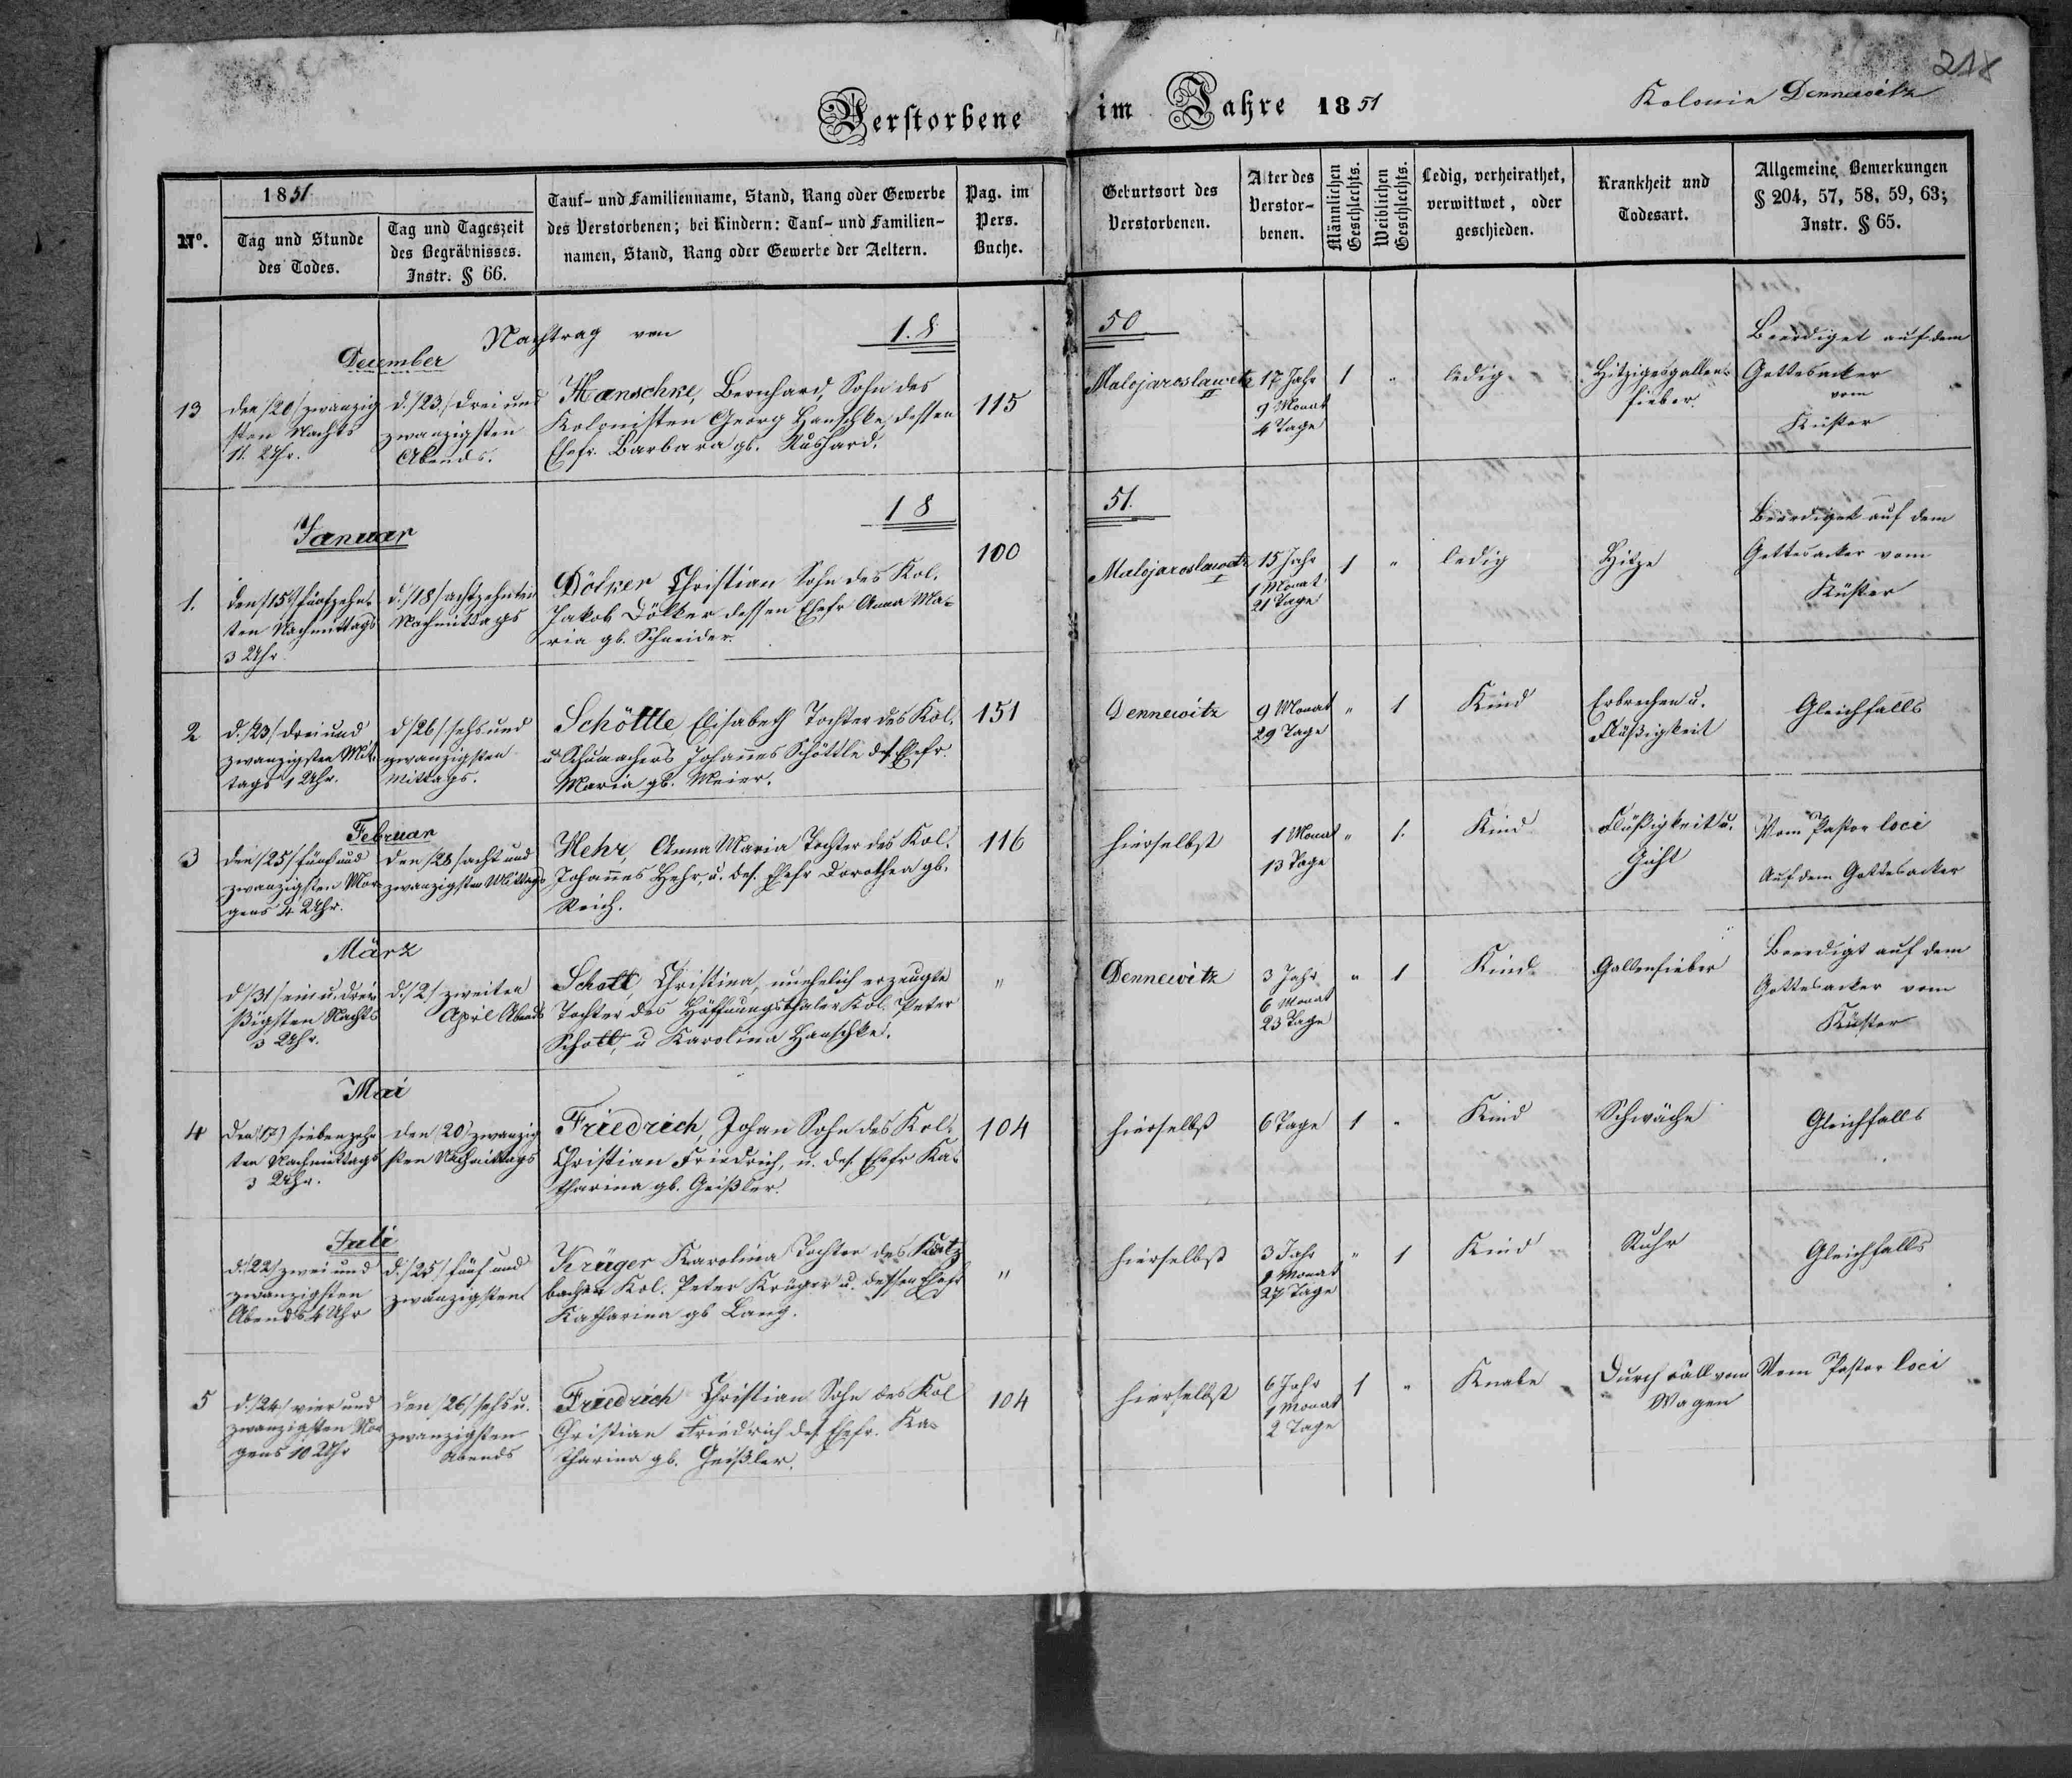 218
Verstorbene im Jahre 1851
Kolonie Dennewitz
No.
1851
Tag und Stunde
des Todes.
Tag und Tageszeit
des Begräbnisses.
Instr. § 66.
Tauf- und Familienname, Stand, Rang oder Gewerbe
des Verstorbenen; bei Kindern: Tauf- und Familien-
namen, Stand, Rang oder Gewerbe der Aeltern.
Pag. im
Pers.
Buche.
Geburtsort des
Verstorbenen.
Alter des
Verstor-
benen.
Männlichen
Geschlechts.
Weiblichen
Geschlechts.
Ledig, verheirathet,
verwittwet, oder
geschieden.
Krankheit und
Todesart.
Allgemeine Bemerkungen
§ 204, 57, 58, 59, 63;
Instr. § 65.
Nachtrag von 18 50
December
13
den /20/ zwanzig
sten Nachts
11 Uhr.
d. /23./ drei und
zwanzigsten
Abends.
Hanschke, Bernhard, Sohn des
Kolonisten Georg Hanschke, dessen
Ehefr. Barbara gb.
115
Malojaroslawetz
II
17 Jahr
9 Monat
4 Tage
1
"
ledig
Hitziges Gallen-
fieber.
Beerdiget auf dem
Gottesacker
vom
Küster
18 51.
Januar
1.
den /15t/ fünfzehn-
ten Nachmittags
3 Uhr
d. /18/ achtzehnten
Nachmittags
Dölker Christian Sohn des Kol.
Jakob Dölker dessen Ehefr Anna Ma-
ria gb. Schneider.
100
Malojaroslawetz
I
15 Jahr
1 Monat
21 Tage
1
"
ledig
Hitze
Beerdiget auf dem
Gottesacker vom
Küster
2
d. /23/ drei und
zwanzigsten Mit-
tags 1 Uhr.
d /26/ sechs und
zwanzigsten
Mittags.
Schöttle, Elisabeth Tochter des Kol.
u Schumachers Johannes Schöttle des. Ehefr.
Maria gb. Meier.
151
Dennewitz
9 Monat
29 Tage
"
1
Kind
Erbrechen u.
Flüßigkeit
Gleichfalls
Februar
3
den /25/ fünf und
zwanzigsten Mor-
gens 4 Uhr.
den /28/ acht und
zwanzigsten Mittags
Hehr, Anna Maria Tochter des Kol.
Johannes Hehr, u. des. Ehefr Dorothea gb.
Reich.
116
hierselbst
1 Monat
13 Tage
"
1.
Kind
Flüßigkeit u.
Gicht
Vom Pastor loci
Auf dem Gottesacker
März
d /31/ ein u. drei-
ßigsten Nachts
3 Uhr.
d. /2/ zweiten
April Abends
Schott, Christina, unehelich erzeugte
Tochter des Hoffnungsthaler Kol. Peter
Schott, u Karolina Hanschke.
"
Dennewitz
3 Jahr
6 Monat
23 Tage
"
1
Kind
Gallenfieber
Beerdigt auf dem
Gottesacker vom
Küster
Mai
4
den /17/ siebenzehn
ten Nachmittags
3 Uhr.
den /20/ zwanzig
sten Nachmittags
Friedrich, Johan Sohn des Kol.
Christian Friedrich, u. des. Ehefr Ka-
tharina gb. Geißler.
104
hierselbst
6 Tage
1
"
Kind
Schwäche
Gleichfalls
Juli
d. /22/ zwei und
zwanzigsten
Abends 4 Uhr
d. /25/ fünf und
zwanzigsten
Krüger Karolina Tochter des Katz
bacher Kol. Peter Krüger u. dessen Ehefr
Katharina gb Lang.
"
hierselbst
3 Jahr
Monat
27 Tage
"
1
Kind
Ruhr
Gleichfalls
5
d. /24/ vier und
zwanzigsten Mor
gens 10 Uhr
den /26/ sechs u.
zwanzigsten
Abends
Friedrich Christian Sohn des Kol
Christian Friedrich des. Ehefr. Ka-
tharina gb. Geißler.
104
hierselbst
6 Jahr
1 Monat
2 Tage
1
"
Knabe
Durch Fall vom
Wagen
Vom Pastor loci